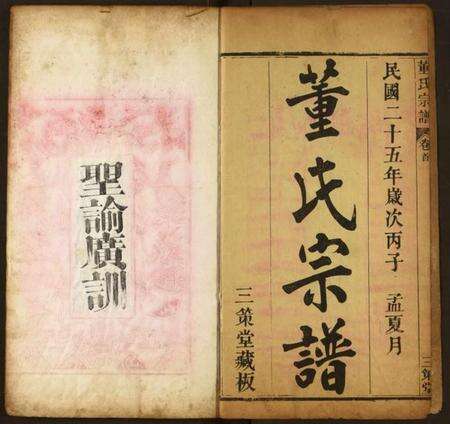 董氏宗譜 卷首
三策堂
民國二十五年歲次丙子 孟夏月
董氏宗譜
三策堂藏板
聖諭廣訓